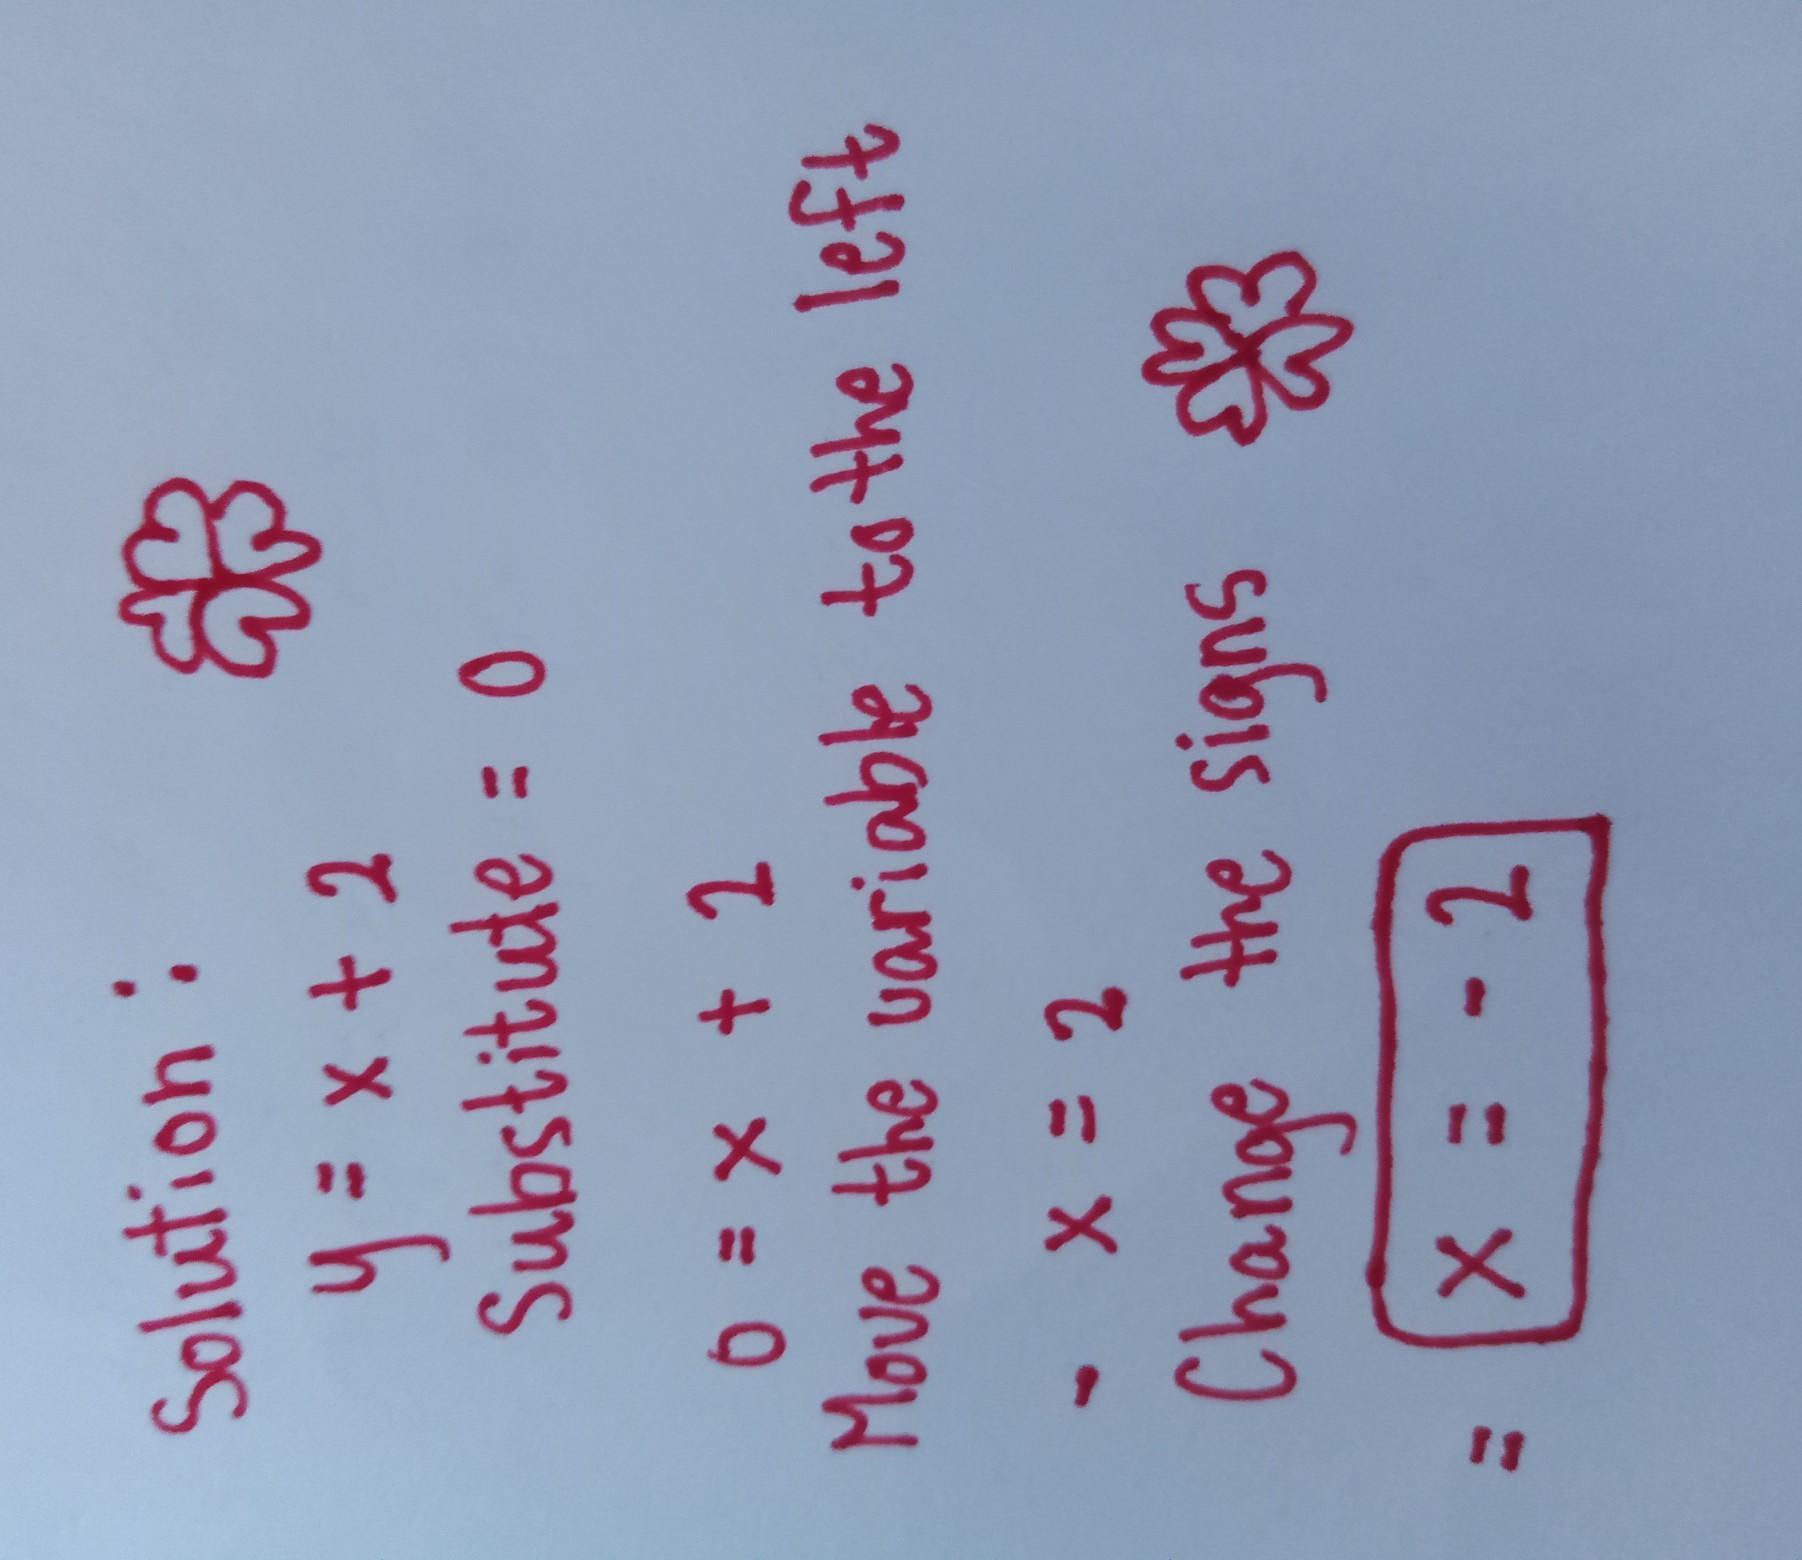 Solution :
y = x + 2
Substitude = 0
0 = x + 2
Move the variable to the left
- x = 2
Change the signs
= x = - 2